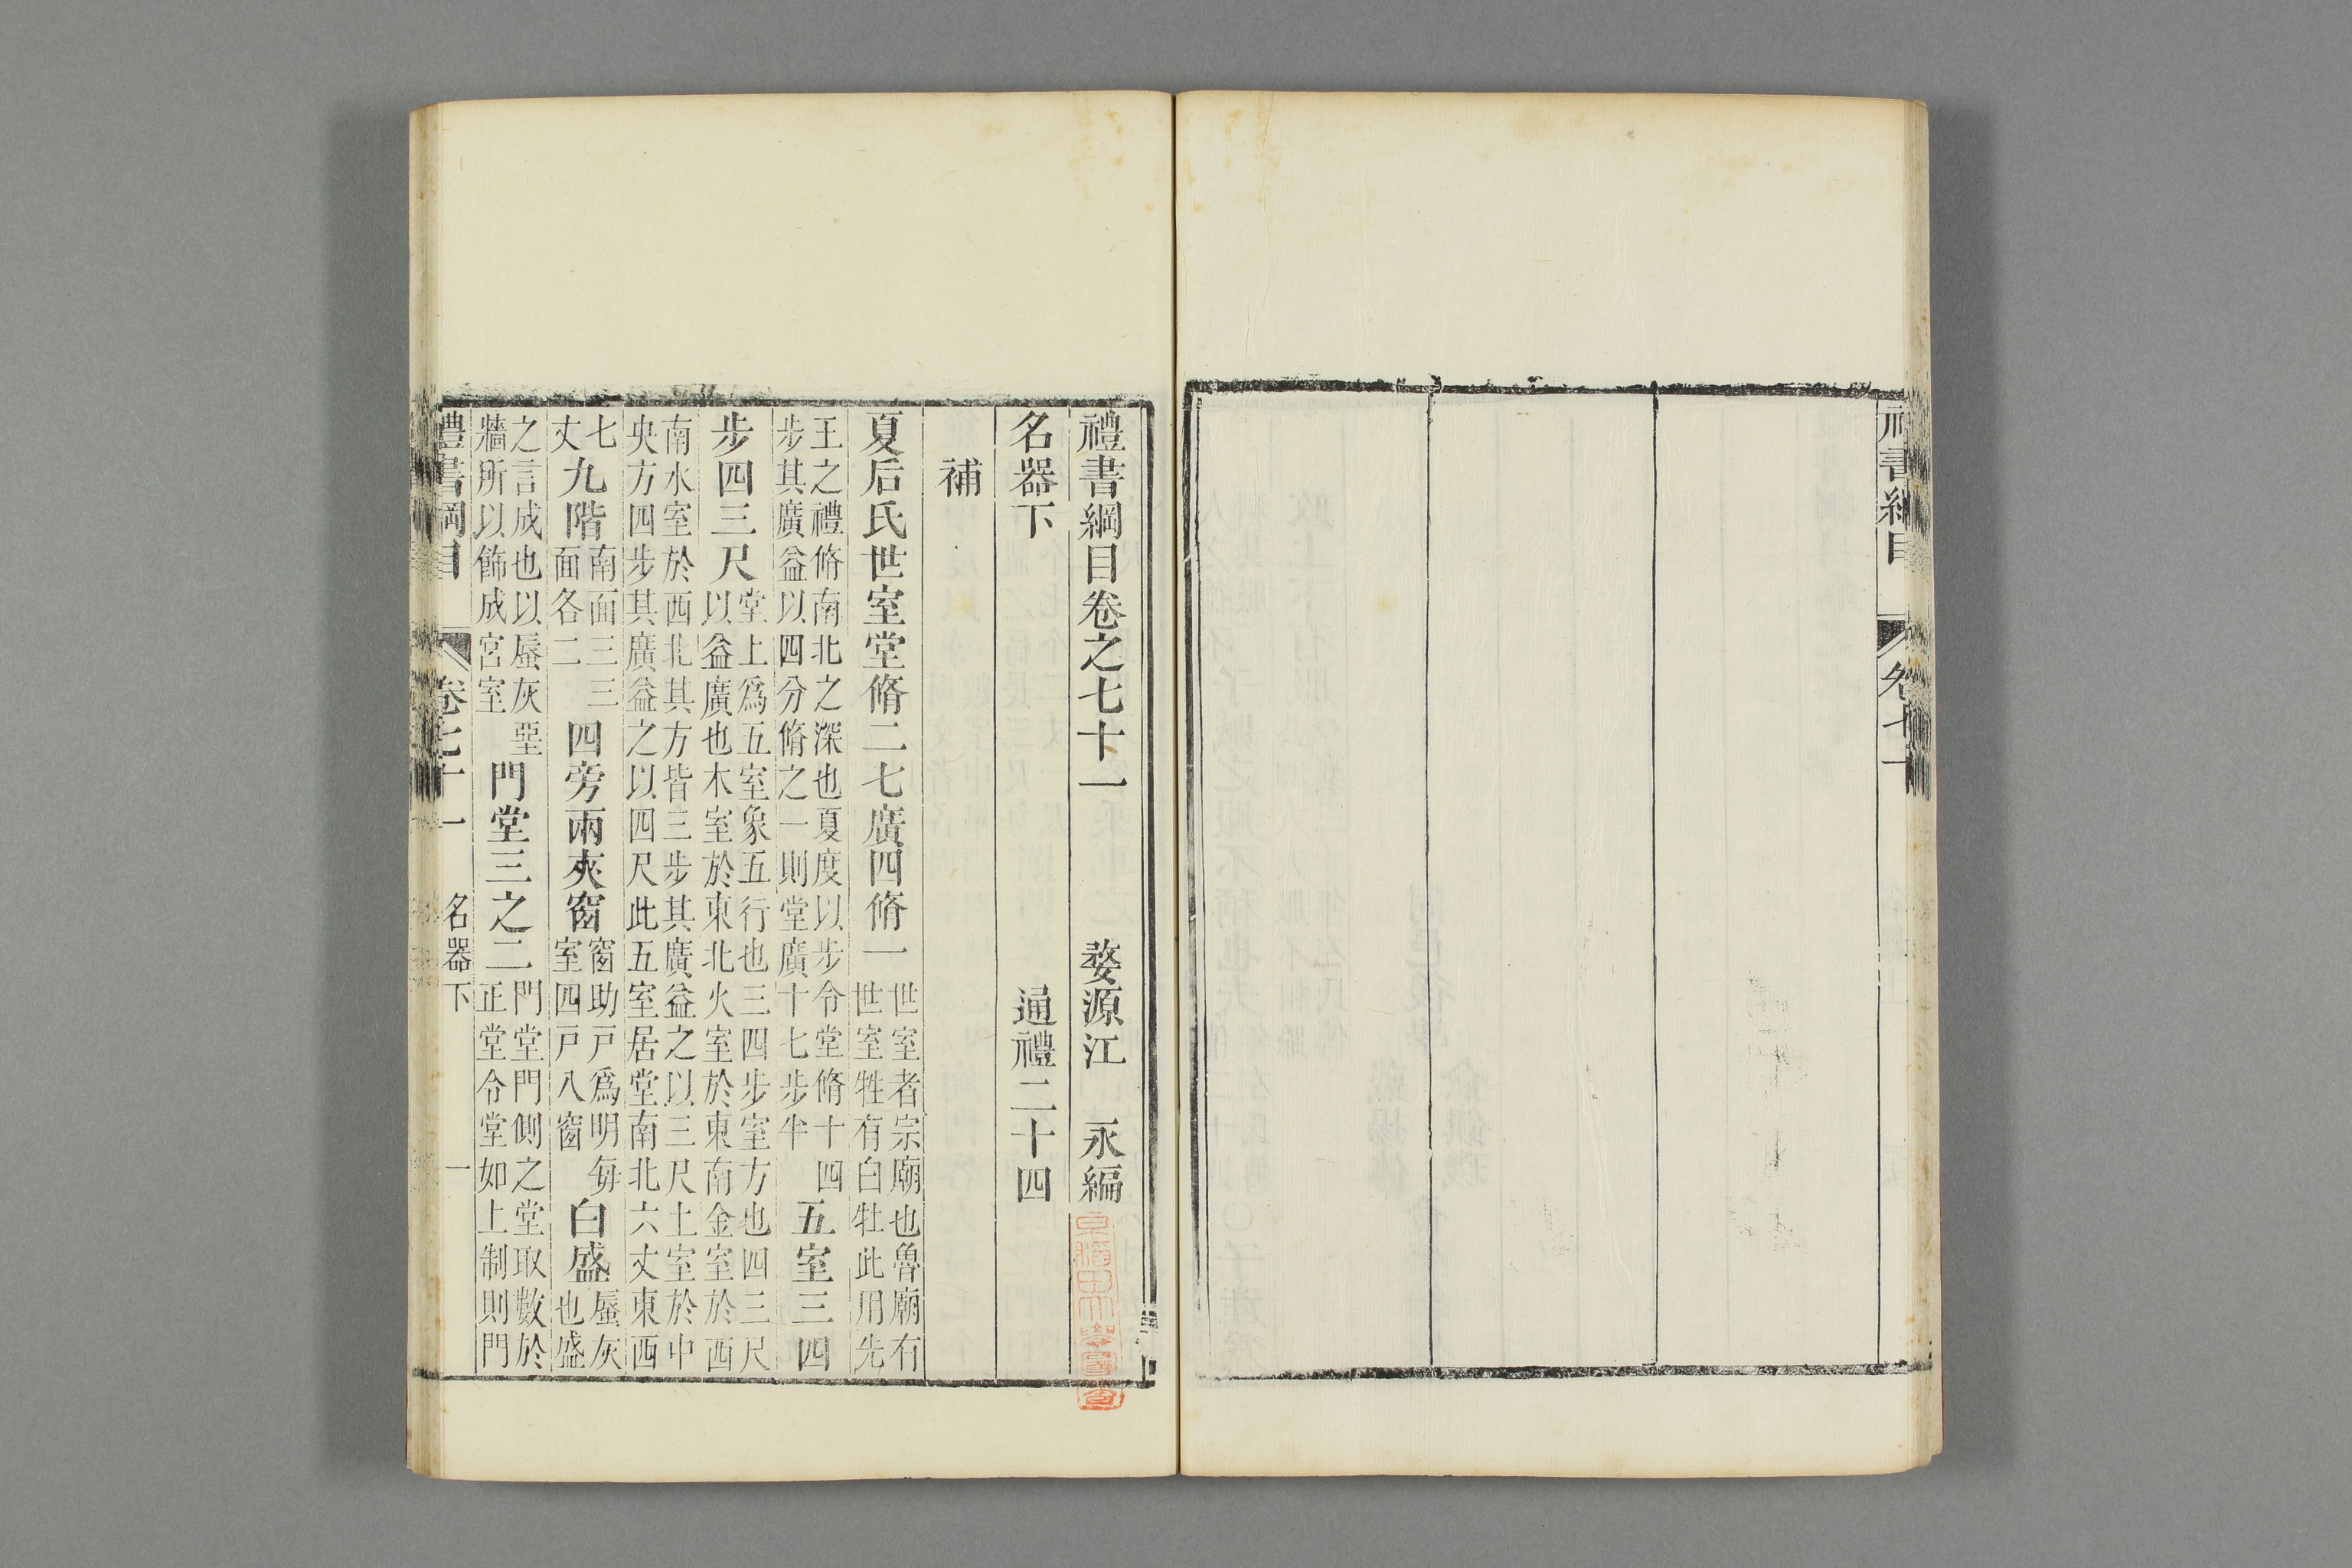 禮書綱目
卷七十
禮書綱目卷之七十一　婺源江　永編
名器下　通禮二十四
補
夏后氏世室堂脩二七廣四脩一世室者宗廟也魯廟有世室牲有白牡此用先
王之禮脩南北之深也夏度以步令堂脩十四步其廣益以四分脩之一則堂廣十七步半五室三四
步四三尺堂上爲五室象五行也三四步室方也四三尺以益廣也木室於東北火室於東南金室於西
南水室於西北其方皆三步其廣益之以三尺土室於中央方四步其廣益之以四尺此五室居堂南北六丈東西
七丈九階南面三三面各二四旁兩夾窗窗助戶爲明每室四戶八窗白盛蜃灰也盛
之言成也以蜃灰堊牆所以飾成宮室門堂三之二門堂門側之堂取數於正堂令堂如上制則門
禮書綱目　卷七十一　名器下　一